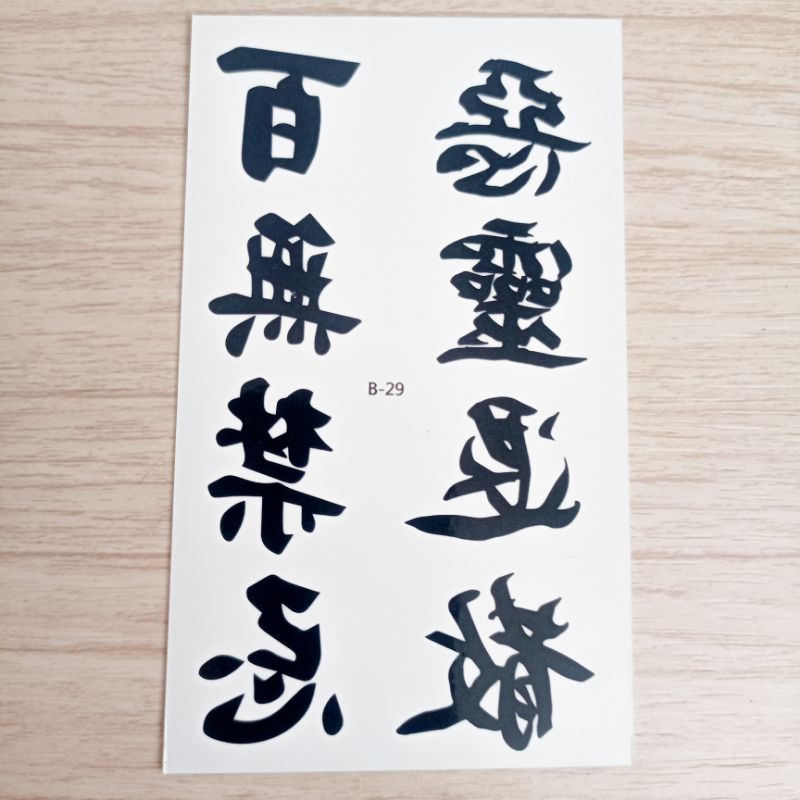 百無禁忌
惡靈退散
B-29